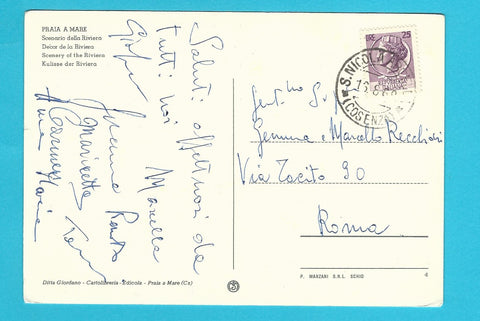 PRAIA A MARE
Scenario della Riviera
Décor de la Riviera
Scenery of the Riviera
Kulisse der Riviera
Saluti affettuosi da
tutti noi
Marella
Marietta
Carmen
Anna Maria
LIRE 25
S. NICOLA
(COSENZA)
Gent.mi Sig.
Gemma e Marcello Recchioni
Via Tacito 90
Roma
Ditta Giordano - Cartolibreria - Edicola - Praia a Mare (Cs)
P. MARZARI S.R.L. SCHIO